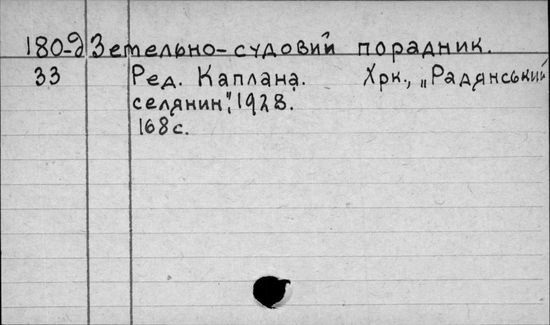 180-д Земельно-судовий порадник.
33 Ред. Каплана. Хрк., „Радянський
селянин", 1928.
168 с.